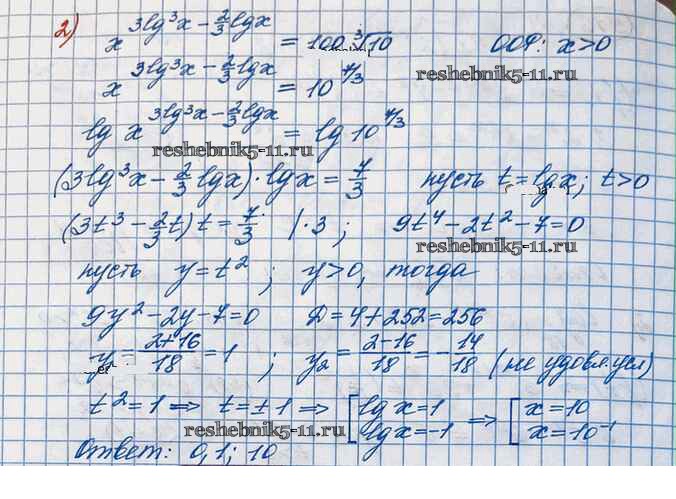 2) x^(3lg³x − 2/3 lgx) = 100·∛10 ООФ: x>0
x^(3lg³x − 2/3 lgx) = 10^(7/3)
reshebnik5-11.ru
lg x^(3lg³x − 2/3 lgx) = lg 10^(7/3)
reshebnik5-11.ru
(3lg³x − 2/3 lgx)·lgx = 7/3 пусть t = lgx; t>0
(3t³ − 2/3 t)t = 7/3 |·3 ; 9t⁴ − 2t² − 7 = 0
reshebnik5-11.ru
пусть y = t² ; y>0, тогда
9y² − 2y − 7 = 0 D = 4 + 252 = 256
y = (2+16)/18 = 1 ; y₂ = (2−16)/18 = −14/18 (не удовл. усл)
t² = 1 ⇒ t = ±1 ⇒ [lgx = 1 lgx = −1 ⇒ [x = 10 x = 10⁻¹
reshebnik5-11.ru
Ответ: 0,1; 10